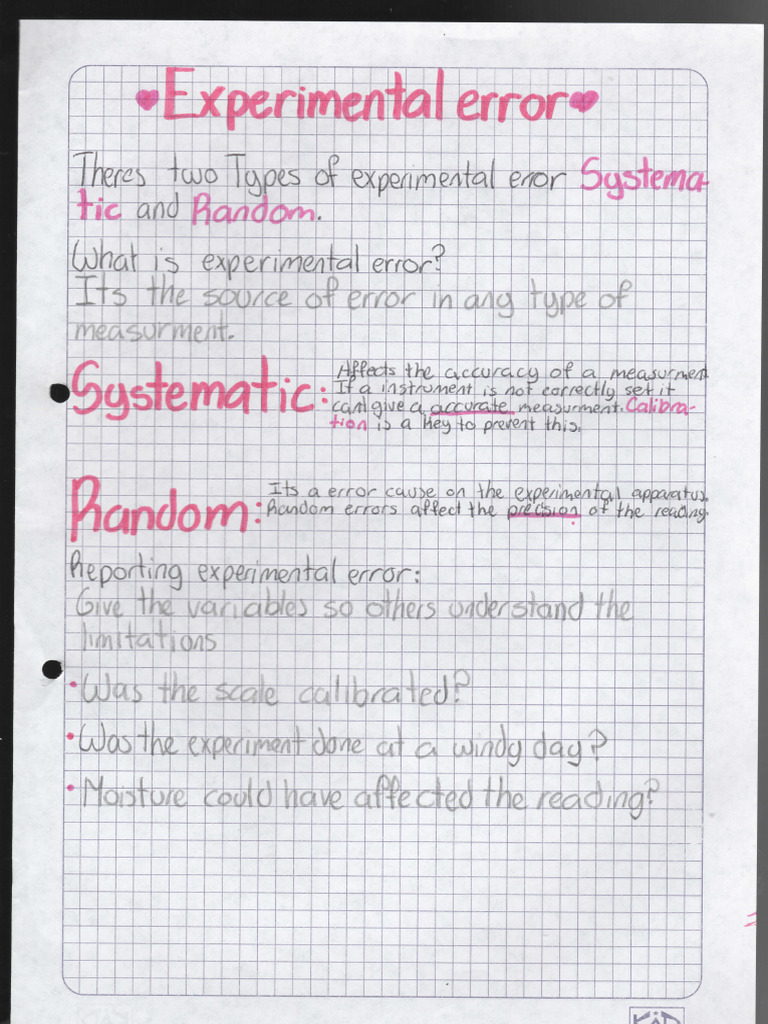 Experimental error
Theres two Types of experimental error Systema-
tic and Random.
What is experimental error?
Its the source of error in any type of
measurment.
Systematic:
Affects the accuracy of a measurment
If a instrument is not correctly set it
cant give a accurate measurment. Calibra-
tion is a key to prevent this.
Random:
Its a error cause on the experimental apparatus.
Random errors affect the precision of the reading.
Reporting experimental error:
Give the variables so others understand the
limitations
• Was the scale calibrated?
• Was the experiment done at a windy day?
• Moisture could have affected the reading?